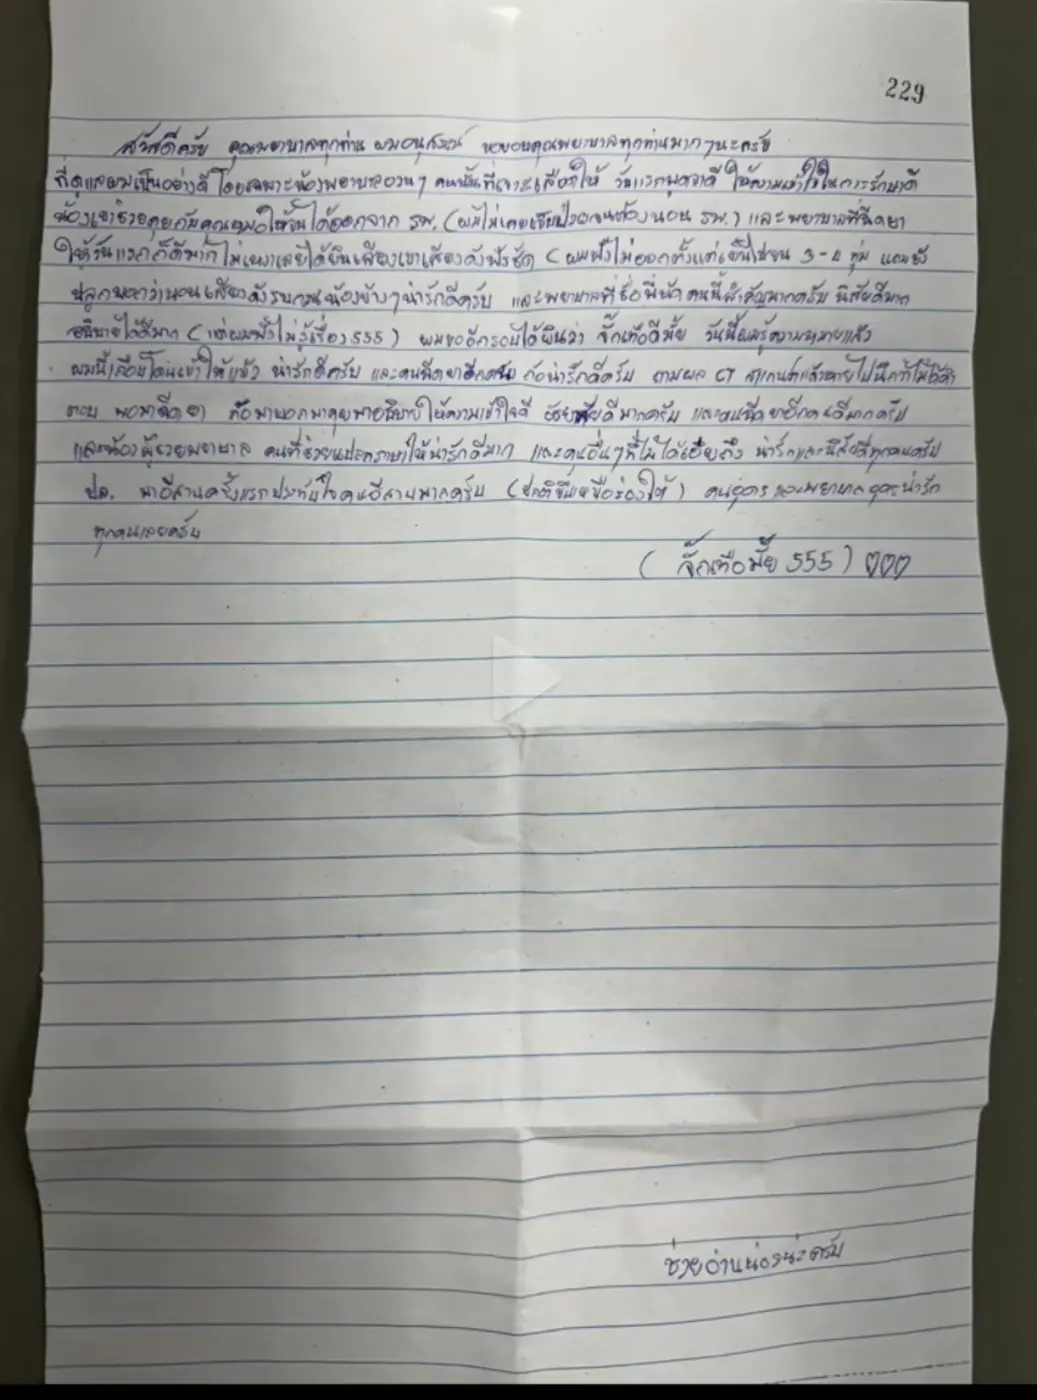 229
สวัสดีครับ คุณพยาบาลทุกท่าน ผมอนุสรณ์ ขอบคุณพยาบาลทุกท่านมากๆนะครับ
ที่ดูแลผมเป็นอย่างดี โดยเฉพาะน้องพยาบาลอวบๆ คนนั้นที่เจาะเลือดให้ วันแรกพูดจาดี ให้ความเข้าใจในการรักษาดี
น้องเขาช่วยคุยกับคุณหมอให้จนได้ออกจาก รพ. (ผมไม่เคยเจ็บป่วยจนต้องนอน รพ.) และพยาบาลที่ฉีดยา
ให้วันแรกก็ดีมาก ไม่เหงาเลยได้ยินเสียงเขาเสียงดังฟังชัด (ผมฟังไม่ออกตั้งแต่เย็นไปจน 3-4 ทุ่ม แถมยัง
ปลุกบอกว่านอนเสียงดังรบกวนน้องข้างๆ น่ารักดีครับ และพยาบาลที่ชื่อพี่นัก คนนี้สำคัญมากครับ นิสัยดีมาก
อธิบายได้ดีมาก (แต่ผมฟังไม่รู้เรื่อง 555) ผมขออีกรอบได้ยินว่า จั๊กเทือดีมั้ย วันนี้ผมรู้ความหมายแล้ว
ผมนี้เกือบโดนเข้าให้แล้ว น่ารักดีครับ และคนฉีดยาอีกคน ก็น่ารักดีครับ ถามผล CT สแกนแล้วหายไปนึกว่าไม่ได้คำ
ตอบ พอมาฉีดยา ก็มาบอกมาคุยมาอธิบายให้ความเข้าใจดี อัธยาศัยดีมากครับ และคนฉีดยาอีกคนดีมากครับ
และน้องผู้ช่วยพยาบาล คนที่ช่วยแปลภาษาให้น่ารักดีมาก และคนอื่นๆที่ไม่ได้เอ่ยถึง น่ารักและนิสัยดีทุกคนครับ
ปล. มาอีสานครั้งแรกประทับใจคนอีสานมากครับ (ปกติขึ้นเหนือล่องใต้) คนอุดร และพยาบาลอุดรน่ารัก
ทุกคนเลยครับ
( จั๊กเทือมั้ย 555 ) ♡♡♡
ช่วยอ่านหน่อยนะครับ